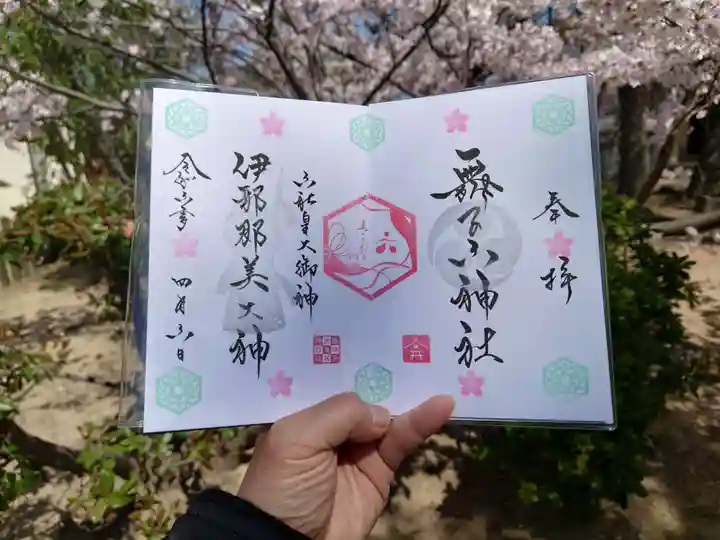 奉拝
舞子六神社
六社皇大御神
伊邪那美大神
令和六年 四月六日